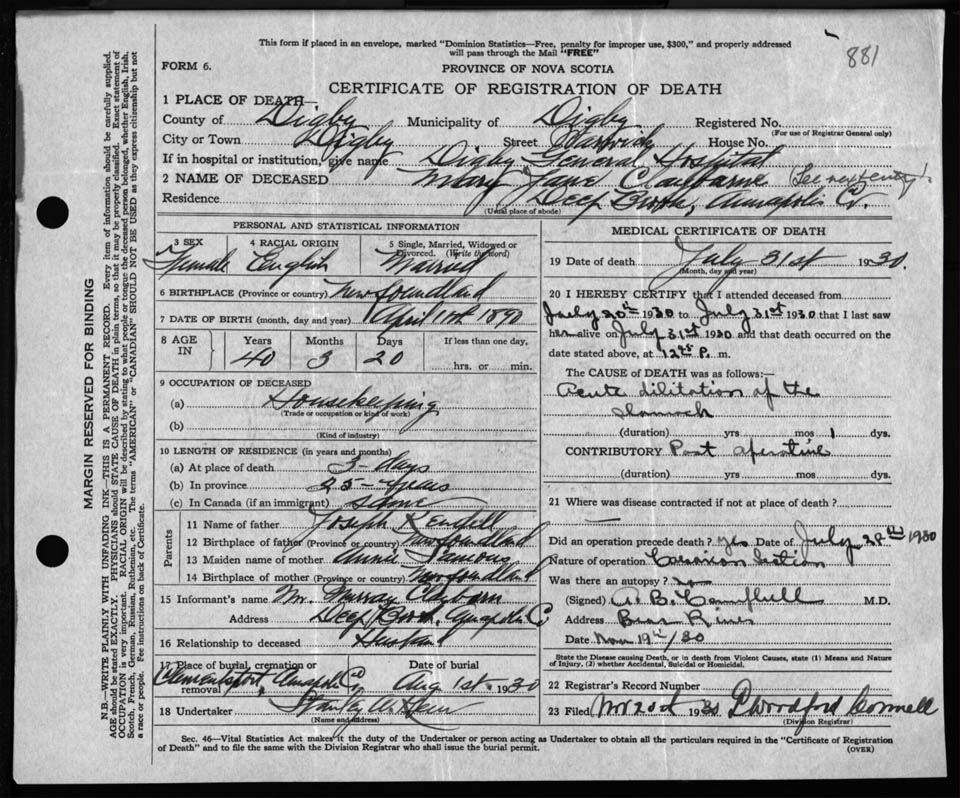 This form if placed in an envelope, marked "Dominion Statistics—Free, penalty for improper use, $300," and properly addressed
will pass through the Mail "FREE"
881
FORM 6.
PROVINCE OF NOVA SCOTIA
CERTIFICATE OF REGISTRATION OF DEATH
1 PLACE OF DEATH—
County of Digby Municipality of Digby Registered No.
(For use of Registrar General only)
City or Town Digby Street Warwick House No.
If in hospital or institution, give name Digby General Hospital
2 NAME OF DECEASED Mary Jane Clayborne (See next entry)
Residence Deep Brook, Annapolis Co.
(Usual place of abode)
PERSONAL AND STATISTICAL INFORMATION
3 SEX 4 RACIAL ORIGIN 5 Single, Married, Widowed or Divorced. (Write the word)
Female English Married
6 BIRTHPLACE (Province or country) Newfoundland
7 DATE OF BIRTH (month, day and year) April 11th 1890
8 AGE IN Years Months Days If less than one day,
40 3 20 hrs. or min.
9 OCCUPATION OF DECEASED
(a) Housekeeping
(Trade or occupation or kind of work)
(b)
(Kind of industry)
10 LENGTH OF RESIDENCE (in years and months)
(a) At place of death 3 - days
(b) In province 25 - years
(c) In Canada (if an immigrant) same
Parents
11 Name of father Joseph Kendell
12 Birthplace of father (Province or country) Newfoundland
13 Maiden name of mother Annie
14 Birthplace of mother (Province or country) Newfoundland
15 Informant's name Mr. Murray Clayborn
Address Deep Brook, Annapolis Co
16 Relationship to deceased Husband
17 Place of burial, cremation or removal Date of burial
Clementsport Annapolis Co Aug 1st. 1930
18 Undertaker Stanley
(Name and address)
MEDICAL CERTIFICATE OF DEATH
19 Date of death July 31st 1930.
(Month, day and year)
20 I HEREBY CERTIFY that I attended deceased from
July 20th 1930 to July 31st 1930 that I last saw
her alive on July 31st 1930 and that death occurred on the
date stated above, at 12 45 P. m.
The CAUSE OF DEATH was as follows:—
Acute dilitation of the
stomach
(duration) yrs mos 1 dys.
CONTRIBUTORY Post operative
(duration) yrs mos dys.
21 Where was disease contracted if not at place of death?
Did an operation precede death? Yes Date of July 28th 1930
Nature of operation Cesarian Section
Was there an autopsy? no
(Signed) A. B. Campbell M.D.
Address Bear River
Date Nov 19th/30
State the Disease causing Death, or in death from Violent Causes, state (1) Means and Nature
of Injury, (2) whether Accidental, Suicidal or Homicidal.
22 Registrar's Record Number
23 Filed Nov 20th 1930 P Woodford Connell
(Division Registrar)
Sec. 46—Vital Statistics Act makes it the duty of the Undertaker or person acting as Undertaker to obtain all the particulars required in the "Certificate of Registration
of Death" and to file the same with the Division Registrar who shall issue the burial permit.
(OVER)
MARGIN RESERVED FOR BINDING
N.B.—WRITE PLAINLY WITH UNFADING INK—THIS IS A PERMANENT RECORD. Every item of information should be carefully supplied.
AGE should be stated EXACTLY. PHYSICIANS should STATE CAUSE OF DEATH in plain terms, so that it may be properly classified. Exact statement of
OCCUPATION is very important. RACIAL ORIGIN will be described by stating to what people or tongue the deceased person belonged, whether English, Irish,
Scotch, French, German, Russian, Ruthenian, etc. The terms "AMERICAN" or "CANADIAN" SHOULD NOT BE USED as they express citizenship but not
a race or people. Fee instructions on back of Certificate.